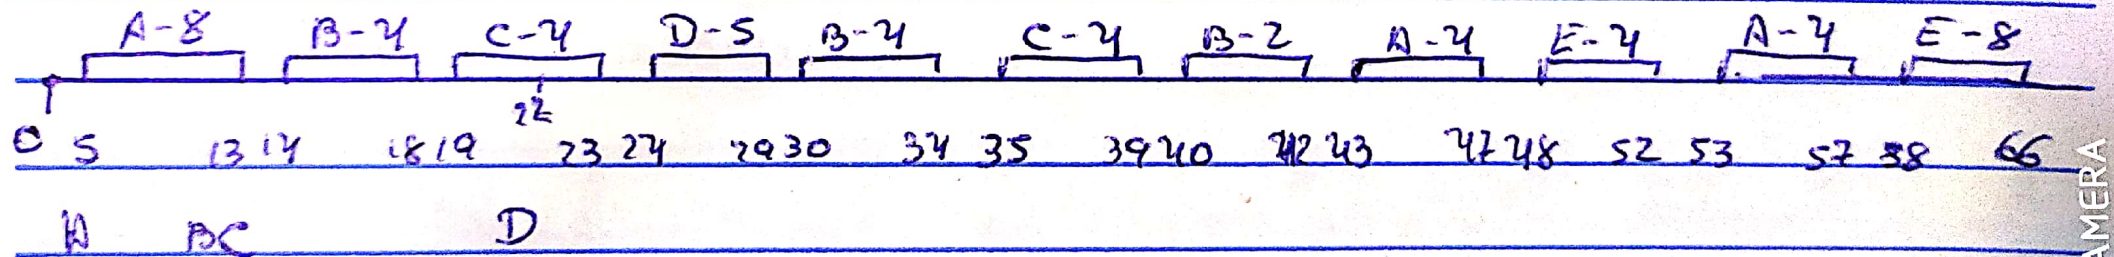 A-8 B-4 C-4 D-5 B-4 C-4 B-2 A-4 E-4 A-4 E-8
22
0 5 13 14 18 19 23 24 29 30 34 35 39 40 42 43 47 48 52 53 57 58 66
A BC D
AMERA